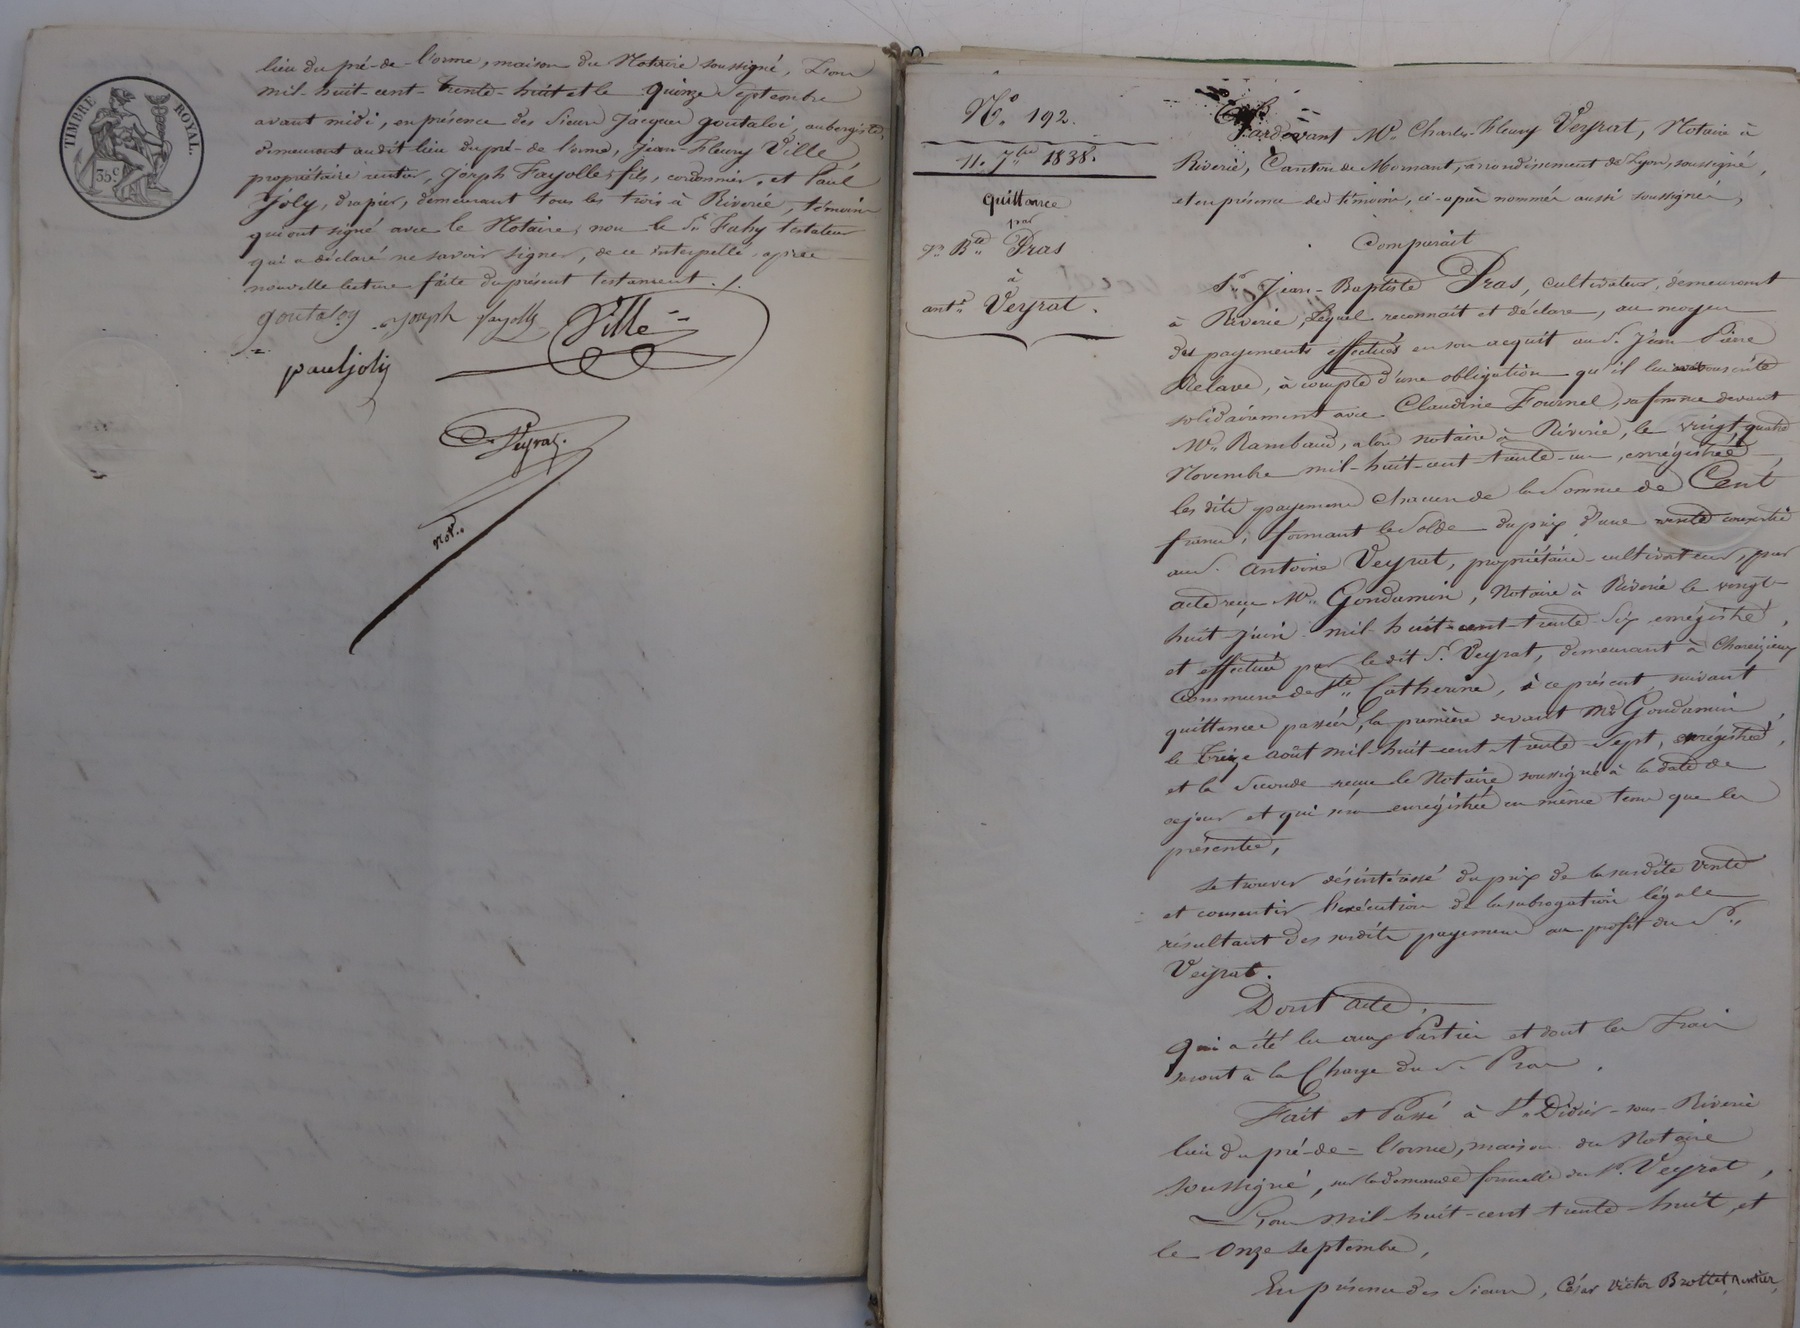 TIMBRE ROYAL.
35c
lieu du pré-de-l'orme, maison du Notaire soussigné, L'an
mil-huit-cent-trente-huit et le quinze Septembre
avant midi, en présence des Sieurs Jacques goutaloi, aubergiste,
demeurant audit lieu du pré-de l'orme, Jean-Fleury Ville
propriétaire rentier, Joseph Fayolle fils, cordonnier, et Paul
Joly, drapier, demeurant tous les trois à Riverie, témoins
qui ont signé avec le Notaire, non le Sr. Fahy testateur
qui a déclaré ne savoir signer, de ce interpellé, après
nouvelle lecture faite du présent testament ./.
goutaloy joseph fayolle Ville
paul joly
Veyrat.
Not..
No. 192.
11. 7bre 1838.
quittance
par
Jn. Bte. Pras
à
ante. Veyrat.
Pardevant Me. Charles-Fleury Veyrat, Notaire à
Riverie, Canton de Mornant, arrondissement de Lyon, soussigné,
et en présence des témoins, ci-après nommés aussi soussignés,
Comparait
Sr. Jean-Baptiste Pras, cultivateur, demeurant
à Riverie, Lequel reconnait et déclare, au moyen
des payements effectués en son acquit au S. Jean Pierre
Relave, à compte d'une obligation qu'il lui souscrite
solidairement avec Claudine Fournel, sa femme devant
Me. Rambaud, alors notaire à Riverie, le vingt quatre
Novembre mil-huit-cent trente-un, enrégistrée
les dits payemens chacun de la Somme de Cent
francs, formant le Solde du prix d'une vente consentie
au S. Antoine Veyrat, propriétaire-cultivateur, par
acte reçu Me. Gondamin, Notaire à Riverie le vingt-
huit Juin mil-huit-cent-trente-six enrégistré,
et effectués par le dit Sr. Veyrat, demeurant à
Commune de Ste. Catherine, à ce présent, suivant
quittances passées, la première devant Me Gondamin
le treize août mil-huit-cent-trente-sept, enrégistrée,
et la Seconde reçue le Notaire soussigné à la date de
ce jour et qui sera enrégistrée en même tems que les
présentes,
Se trouver désintéressé du prix de la susdite vente
et consentir l'exécution de la subrogation légale
résultant des susdits payemens au profit du Sr.
Veyrat.
Dont acte.
Qui a été lu aux Parties et dont les frais
seront à la Charge du S. Pras.
Fait et Passé à St. Didier-sous-Riverie
lieu du pré-de-l'orme, maison du Notaire
soussigné, sur la demande formelle du S. Veyrat,
L'an mil-huit-cent trente-huit, et
le Onze Septembre,
En présence des Sieurs, César Victor Brottet, rentier,